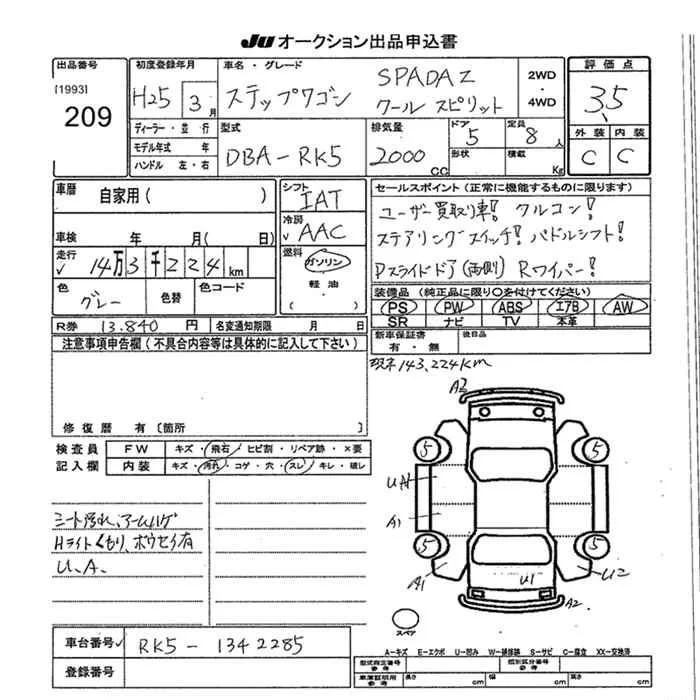 JU オークション出品申込書
出品番号
[1993]
209
初度登録年月
H25 3月
車名・グレード
ステップワゴン
SPADA Z
クール スピリット
2WD
・
4WD
評価点
3.5
外装 内装
C C
ディーラー・並行
モデル年式 年
ハンドル 左・右
型式
DBA-RK5
排気量
2000cc
ドア
5
形状
定員
8人
積載
Kg
車歴
自家用( )
車検 年 月( 日)
走行
✓ 14万3千224km
色
グレー
色替
色コード
シフト
IAT
冷房
✓ AAC
燃料
ガソリン
・
軽油
( )
セールスポイント(正常に機能するものに限ります)
ユーザー買取り車! クルコン!
ステアリングスイッチ! パドルシフト!
Pスライドドア(両側) Rワイパー!
装備品(純正品に限り○を付けてください)
PS PW ABS エアB AW
SR ナビ TV 本革
R券 13.840円
名変通知期限 月 日
新車保証書
有・無
後日品
注意事項申告欄(不具合内容等は具体的に記入して下さい)
現ネ143,224km
修復歴 有〔箇所 〕
検査員
記入欄
FW キズ・飛石・ヒビ割・リペア跡・×要
内装 キズ・汚れ・コゲ・穴・スレ・キレ・破レ
シート汚れ、アームハゲ
Hライトくもり、ボウセイ有
U、A、
A2
5 5
A1
5 5
A1
U1
U2
A2
スペア
車台番号✓ RK5-1342285
登録番号
A-キズ E-エクボ U-凹み W-補修跡 S-サビ C-腐立 XX-交換済
型式指定番号
参考
類別区分番号
参考
車庫証明用
参考
長さ cm 幅 cm 高さ cm